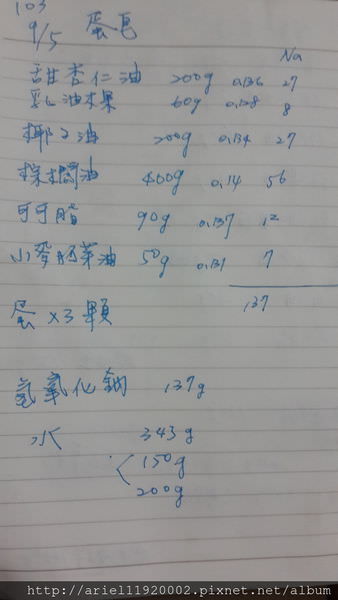 103
9/5 蛋皂
Na
甜杏仁油 200g 0.136 27
乳油木果 60g 0.128 8
椰子油 200g 0.134 27
棕櫚油 400g 0.14 56
可可脂 90g 0.137 12
小麥胚芽油 50g 0.131 7
137
蛋 x3 顆
氫氧化鈉 137g
水 343g
150g
200g
http://ariel11920002.pixnet.net/album